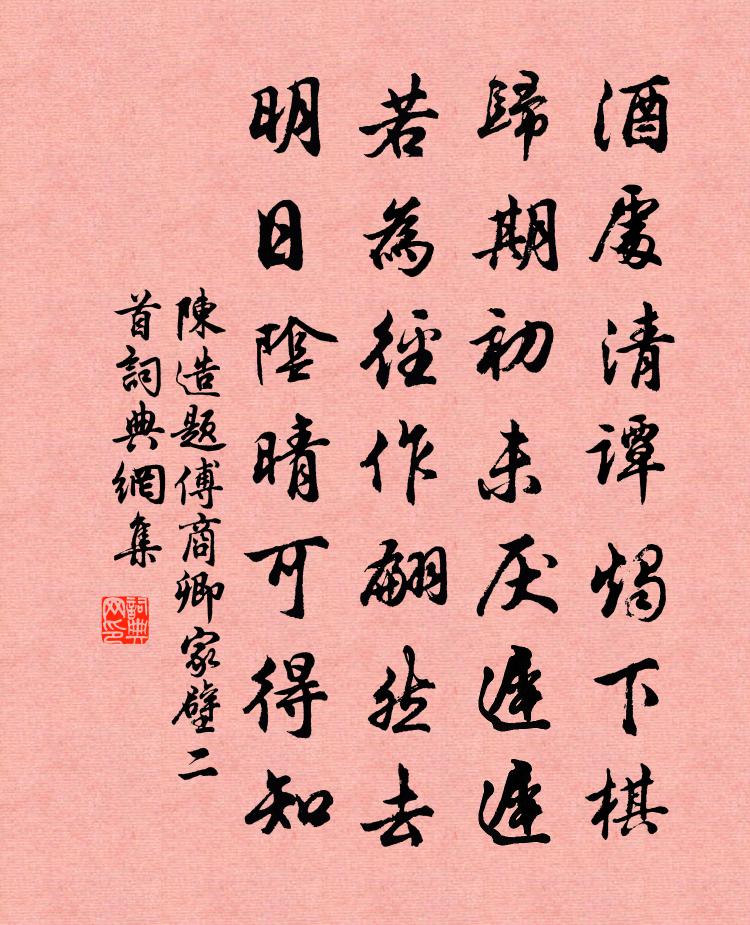 酒處清譚燭下棋
歸期初未厌遲遲
若為徑作翩然去
明日陰晴可得知
陳造題傅商卿家壁二
首詞典網集
詞典
网印